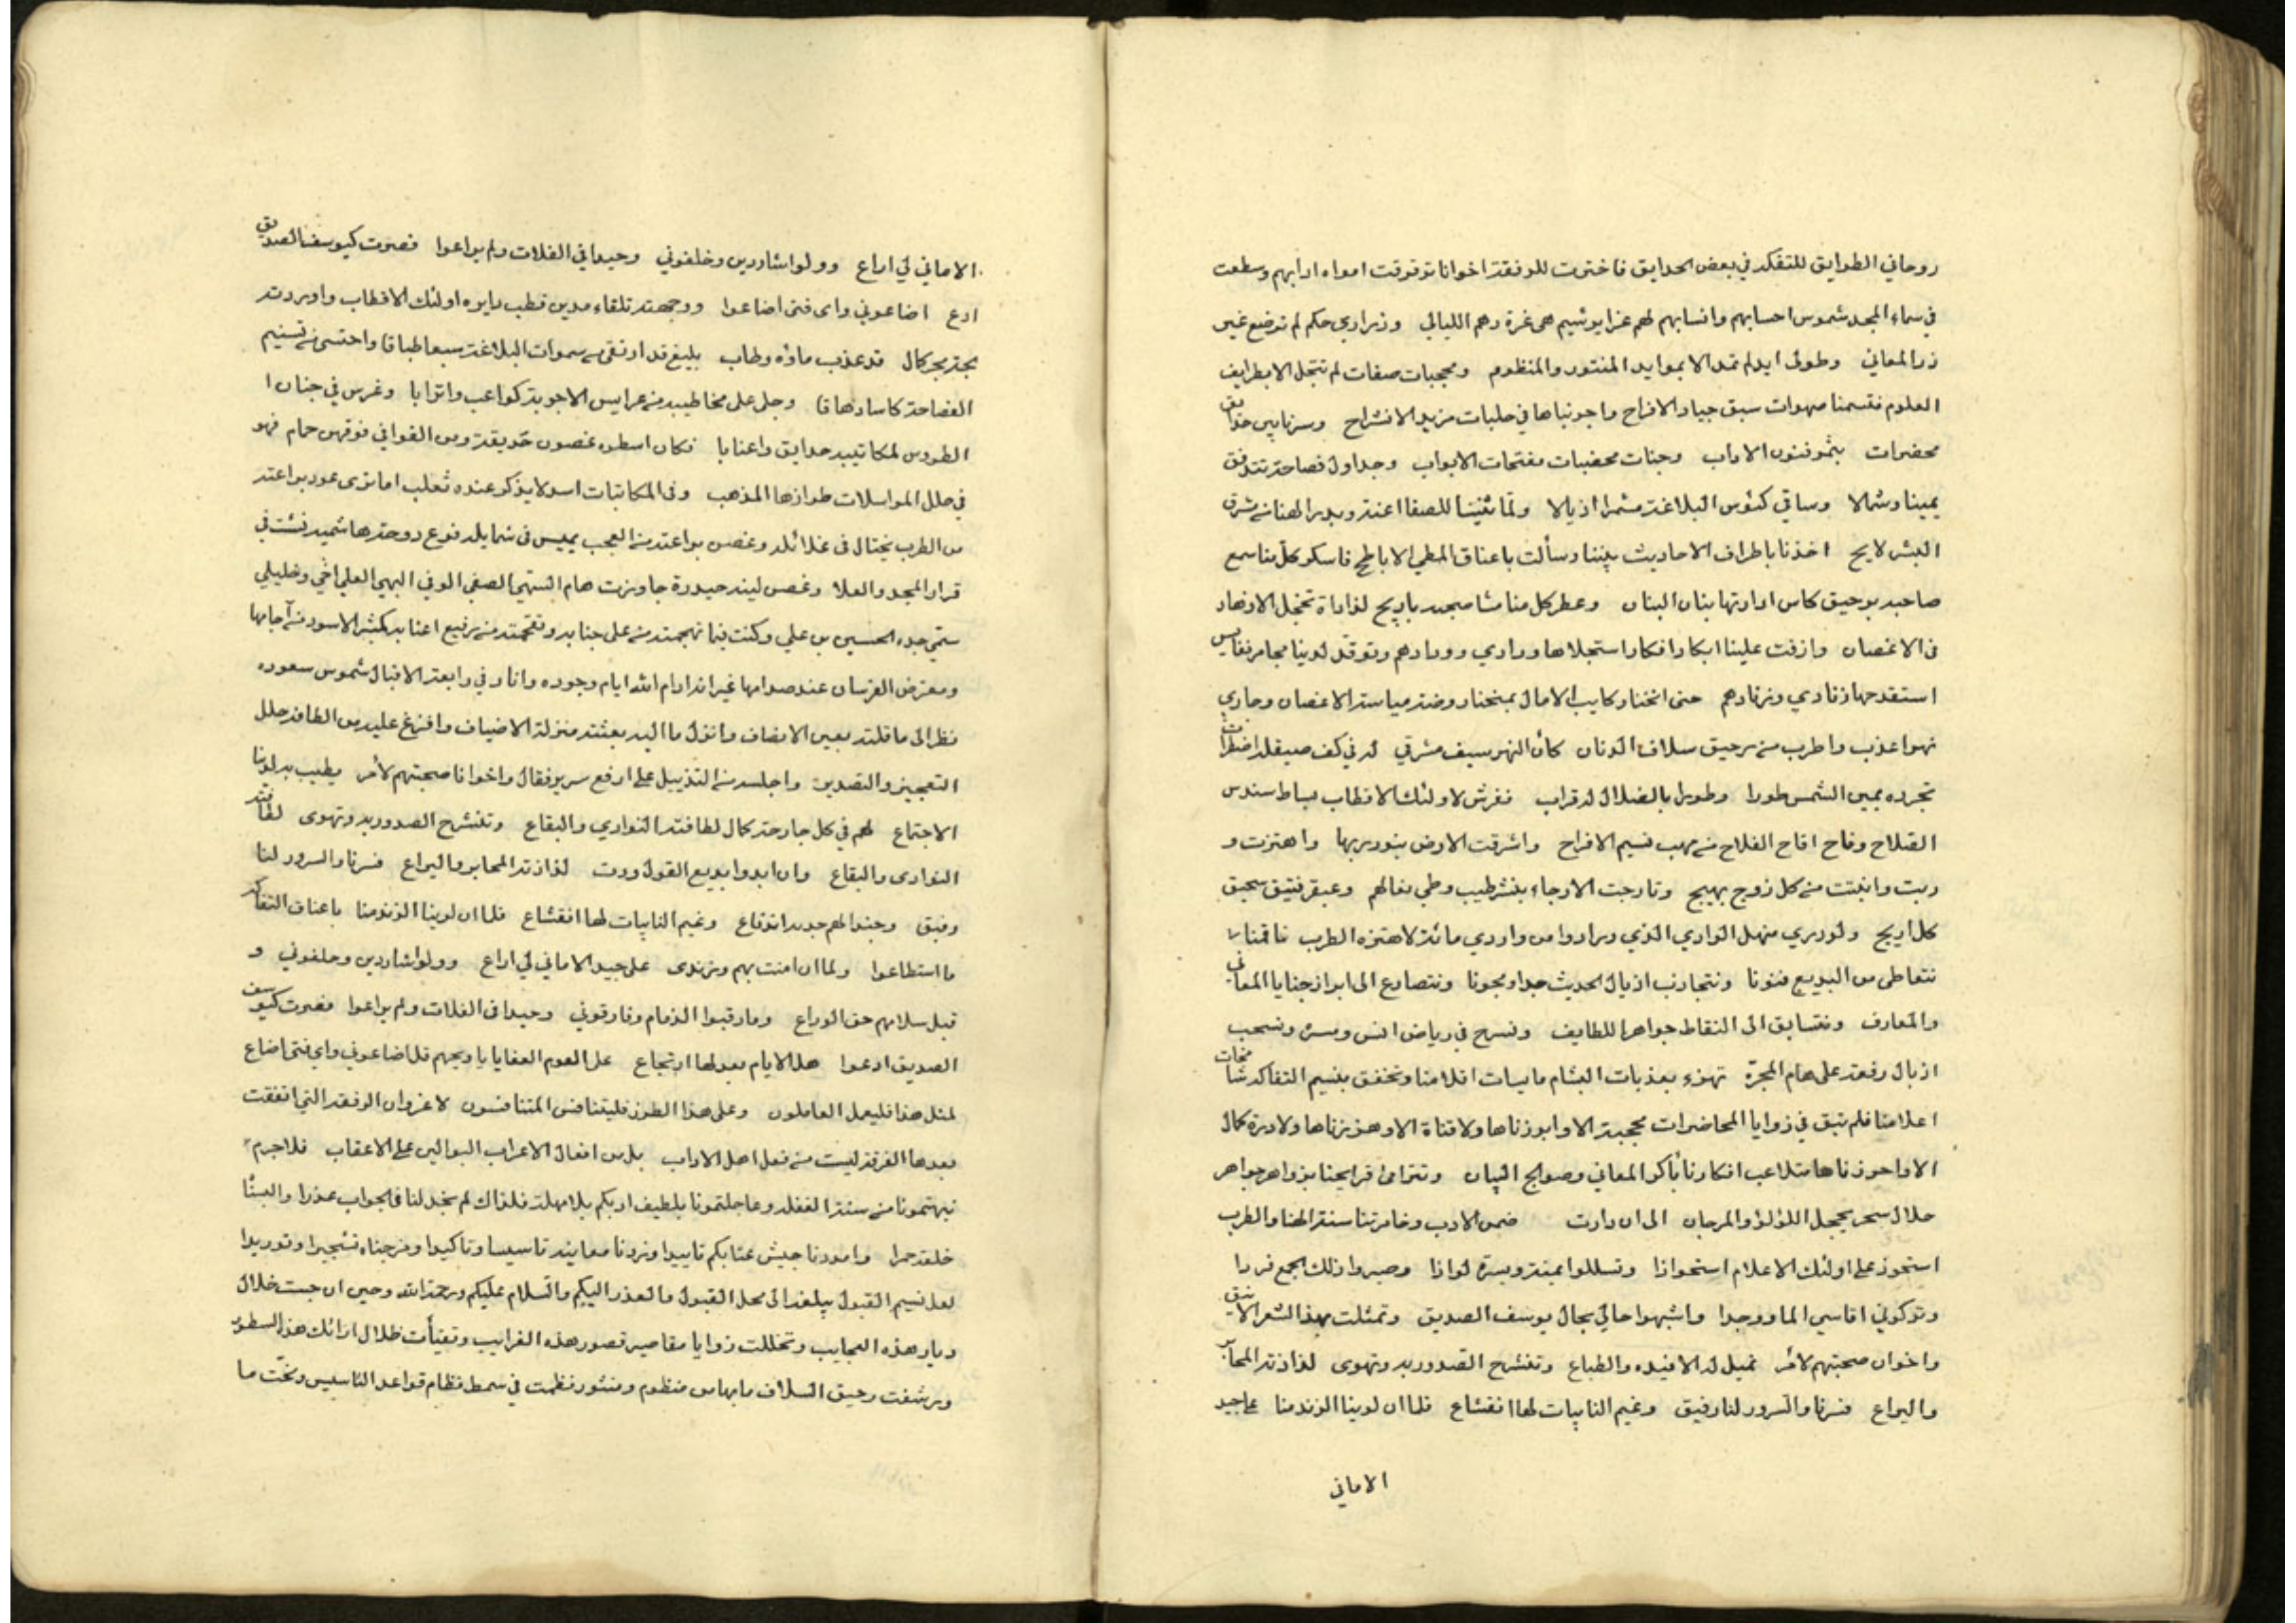 روحاني الطوايق للتفكه في بعض الحدايق فاخترت للرفقة اخوانا توقوقت امواه ادابهم وسطعت
في سماء المجد شموس احسابهم وانسابهم لهم غزا يوشيم هي غرة دهم الليالي وذراري حكم لم ترضع غير
در المعاني وطولى ايد لم تمد الا بموايد المنثور والمنظوم ومحجبات صفات لم تتجل الا بطرايف
العلوم فتسمنا صهوات سبق جياد الافراح واجرناها في حلبات مزيد الانشراح وسرنا بين حدايق
محضرات بثمر فنون الاداب وجنات محضبات مفتحات الابواب وجداول فصاحة تتدفق
يمينا وشمالا وساقي كئوس البلاغة مشمرا اذيالا ولما ثنينا للصفا اعنة وبدر الهنا من شرق
البشر لايح اخذنا باطراف الاحاديث بيننا وسألت باعناق المطي الاباطح فاسكر كل منا سمع
صاحبه برحيق كاس ادارتها بنان البنان وعطر كل منا مشام صحبه باريج لذاذة تخجل الازهار
في الاغصان وازفت علينا ابكار افكار استجلاها ودادي وودادهم وتوقد لدينا مجامر نفايس
استقدحها زنادي وزنادهم حتى انخنا ركايب الامال بمنحنا روضة مياسة الاغصان وحادي
نهر اعذب واطرب من رحيق سلاف الدنان كأن النهر سيف مشرقي له في كف صيقله اضطراب
تجرده يمين الشمس طورا وطورا بالضلال له قراب ففرش لاولئك الاقطاب بساط سندس
الصلاح وفاح اقاح الفلاح من مهب نسيم الافراح واشرقت الارض بنور ربها واهتزت و
ربت وانبتت من كل زوج بهيج وتارجت الارجاء بنشر طيب وطي نعالهم وعبقر فتيق سحيق
كل اريج ولو دري منهل الوادي الذي وردوا من واردي مائه لاهتزه الطرب فاقمنا
نتعاطى من البديع فنونا ونتجاذب اذيال الحديث جدا ومجونا ونتصارع الى ابراز جنايا المعاني
والمعارف ونتسابق الى التقاط جواهر اللطايف ونسرح في رياض انس ومسرة ونسحب
اذيال رفعة على هام المجرة تهزء بعذبات البشام مايسات اقلامنا وتخفق بنسيم التفاكه شامخات
اعلامنا فلم تبق في زوايا المحاضرات محجبة الا وابرزناها ولا قناة الا وهززناها ولا درة كمال
الا واحرزناها متلاعب افكارنا بأكر المعاني وصوالج البيان وتترامى قرايحنا بزواهر جواهر
حلال سحر يخجل اللؤلؤ والمرجان الى ان دارت ضمن الادب وخامرتنا سنة الهنا والطرب
استحوذ على اولئك الاعلام استحواذا وتسللوا يمنة ويسرة لواذا وصيروا ذلك الجمع فردا
وتركوني اقاسي الما ووجدا واشبهوا حالي بحال يوسف الصديق وتمثلت بهذا الشعر الانيق
واخوان صحبتهم لأمر تميل له الافئده والطباع وتنشرح الصدور به وتهوى لذاذته المحابر
واليراع فسرنا والسرور لنا رفيق وغيم النايبات لها انقشاع فلما ان لوينا الزند منا على جيد
الاماني
الاماني لي اراع وولوا شاردين وخلفوني وحيدا في الفلات ولم يراعوا فصرت كيوسف الصديق
ادع اضاعوني واى فتى اضاعوا ووجهته تلقاء مدين قطب دايرة اولئك الاقطاب واوردته
لجة بحر كمال قد عذب ماؤه وطاب بليغ قد ارتقى من سموات البلاغة سبعا طباقا واحتسى من تسنيم
الفصاحة كاسا دهاقا وجلى على مخاطبيه من عرايس الاجوبة كواعب واترابا وغرس في جنان ا
الطروس لمكاتبيه حدايق واعنابا فكان اسطره غصون حديقة ومن القوافي فوقهن حمام فهو
في حلل المراسلات طرازها المذهب وفي المكاتبات اسد لا يذكر عنده ثعلب اما ترى عود براعته
من الطرب يختال في غلائله وغصن براعته من العجب يميس في شمايله فرع دوحة هاشمية نشت في
قرار المجد والعلا وغصن لينه حيدرة جاوزت هام السهى الصفي الوفي البهي العلي اخي وخليلي
سمي جده الحسين بن علي وكنت فيما نهجمته من على جنابه وتقحمته من رفيع اعتابه كمثير الاسود من آجامها
ومعترض الفرسان عند صدامها غير انه ادام الله ايام وجوده وانار في رابعة الاقبال شموس سعوده
نظر الى ما قلته بعين الانصاف وانزل ما اليه بعثته منزلة الاضياف وافرغ عليه من الطافه حلل
التعجيز والتصدير واجلسه من التذييل على ارفع سرير فقال واخوانا صحبتهم لأمر يطيب به لدينا
الاجتماع لهم في كل جارحة كمال لطافته النوادي والبقاع وتنشرح الصدور به وتهوى لطافته
النوادى والبقاع وان ابدوا بديع القول ودت لذاذته المحابر واليراع فسرنا والسرور لنا
رفيق وجند الهم جديد اندفاع وغيم النايبات لها انقشاع فلما ان لوينا الزند منا باعناق التفاكه
ما استطاعوا ولما ان امنت بهم وزندى على جيد الاماني لي اراع وولوا شاردين وخلفوني و
قبل سلامهم حق الوداع وما رقبوا الذمام وفارقوني وحيدا في الفلات ولم يراعوا فصرت كيوسف
الصديق ادعوا هل الايام بعد لها ارتجاع على القوم العفايا يا ويحهم قل اضاعوني واي فتى اضاع
لمثل هذا فليعمل العاملون وعلى هذا الطرز فليتنافس المتنافسون لا غرو ان الرفقة التي اتفقت
بعدها الفرقة ليست من فعل اهل الاداب بل من افعال الاعراب البوالين على الاعقاب فلا جرم
نبهتمونا من سنة الغفلة وعاجلتمونا بلطيف ادبكم بلا مهلة فلذاك لم نجد لنا في الجواب عذرا والبسنا
خلعة حمرا وامددنا جيش عتابكم تاييدا وزدنا معانيه تاسيسا وتاكيدا ومزجناه تشجيرا وتوريدا
لعل نسيم القبول يبلغه الى محل القبول والعذر اليكم والسلام عليكم ورحمة الله وحين ان جست خلال
ديار هذه العجايب وتخللت زوايا مقاصير قصور هذه الغرايب وتفيأت ظلال ارائك هذه السطور
ورشفت رحيق السلاف ما بها من منظوم ومنثور نظمت في سمط نظام قواعد التاسيس ونحت ما